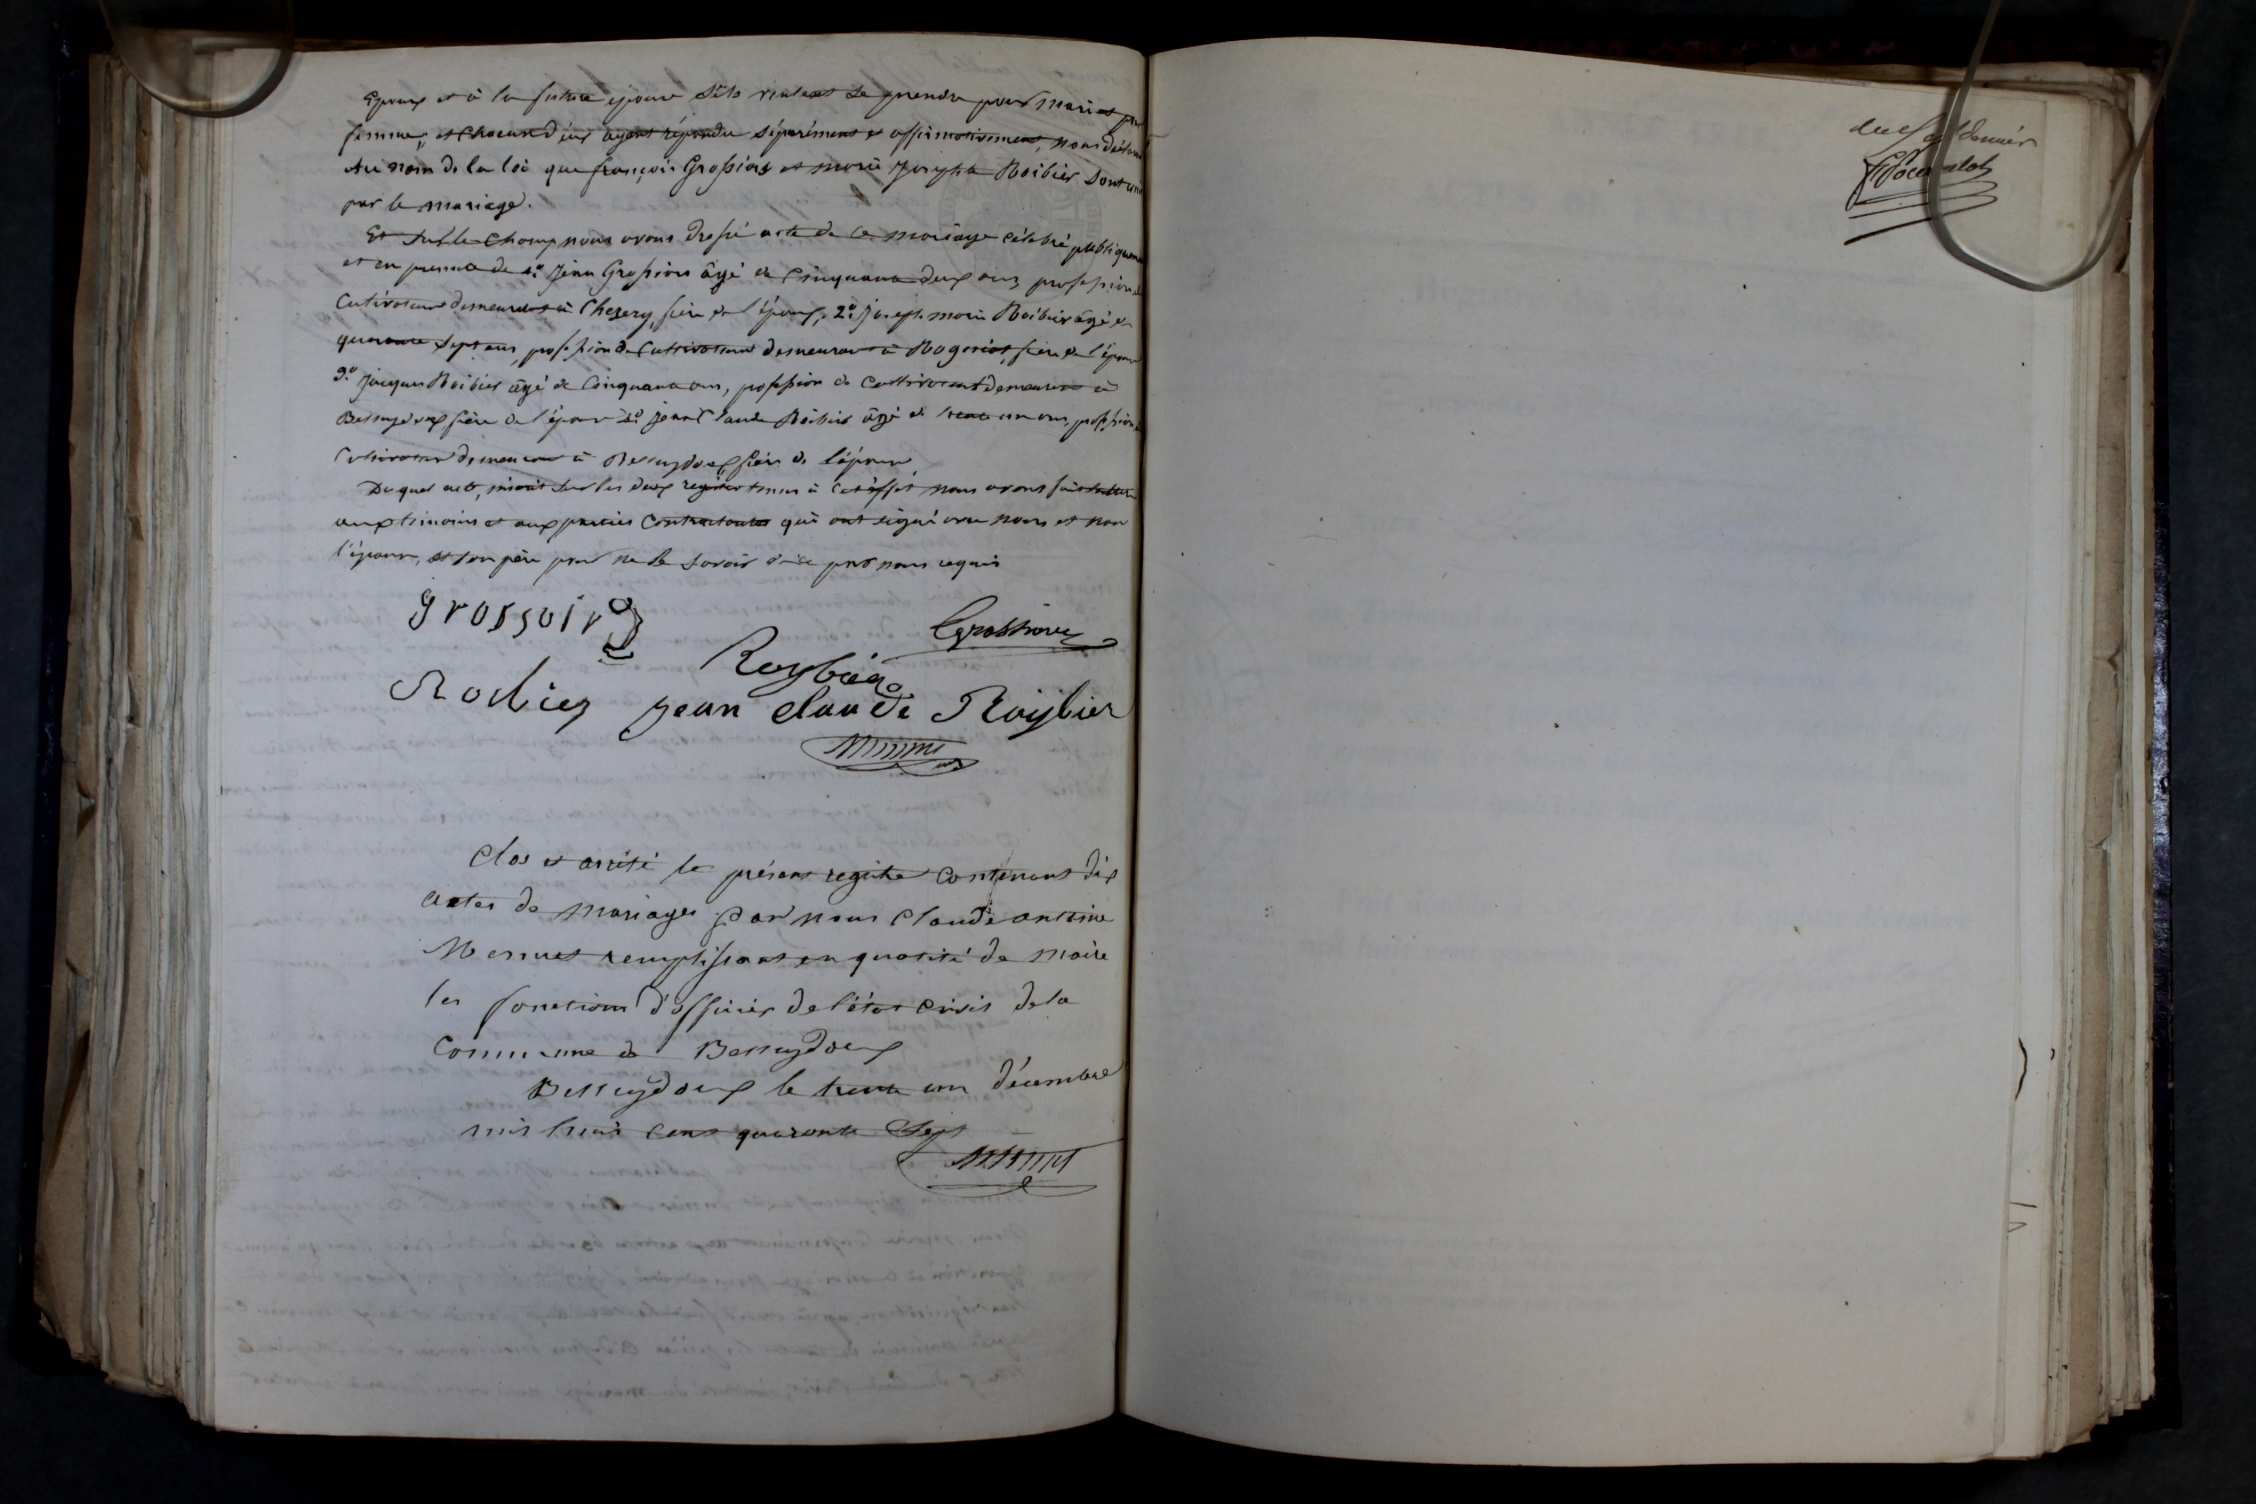 Epoux et à la future épouse s'ils veulent se prendre pour mari et pour
femme, et chacun d'eux ayant répondu séparément et affirmativement, nous déclarons
Au nom de la loi que françois Grossiord et marie Josephte Roibier sont unis
par le mariage.
Et sur le champ nous avons dressé acte de ce mariage célébré publiquement
et en présence de 1.º Jean Grossiord âgé de Cinquante deux ans, profession de
Cultivateur demeurant à Chezery, frère de l'époux, 2.º Joseph marie Roibier âgé de
quarante sept ans, profession de Cultivateur demeurant à Rogeriat, frère de l'épouse
3.º Jacques Roibier âgé de Cinquante ans, profession de Cultivateur demeurant à
Belleydoux frère de l'épouse 4.º Jean Claude Roibier âgé de trente un ans, profession de
Cultivateur demeurant à Belleydoux frère de l'épouse
Du quel acte, inscrit sur les deux registres tenus à cet effet, nous avons fait lecture
aux témoins et aux parties Contractantes qui ont signé avec nous et non
l'épouse, et son père pour ne le savoir de ce par nous requis
grossoird
Grossiord
Roybier
Roibier jean claude Roijbier
Mermet
Clos et arrêté le présent registre contenant dix
actes de mariages par nous Claude antoine
Mermet remplissant en qualité de maire
les fonctions d'officier de l'état civil de la
Commune de Belleydoux
Belleydoux le trente un décembre
mil huit cent quarante Sept
Mermet
dernier